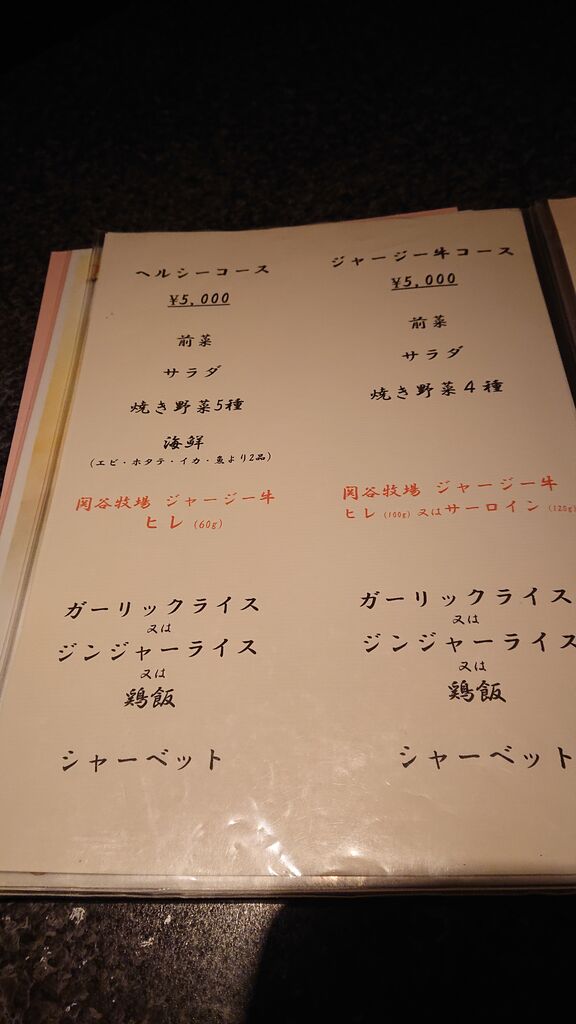 ヘルシーコース
¥5,000
前菜
サラダ
焼き野菜5種
海鮮
(エビ・ホタテ・イカ・魚より2品)
岡谷牧場 ジャージー牛
ヒレ (60g)
ガーリックライス
又は
ジンジャーライス
又は
鶏飯
シャーベット
ジャージー牛コース
¥5,000
前菜
サラダ
焼き野菜4種
岡谷牧場 ジャージー牛
ヒレ (100g) 又はサーロイン (120g)
ガーリックライス
又は
ジンジャーライス
又は
鶏飯
シャーベット